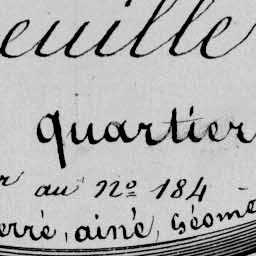 euille
quartier
r au Nº 184
erré, ainé, Géome